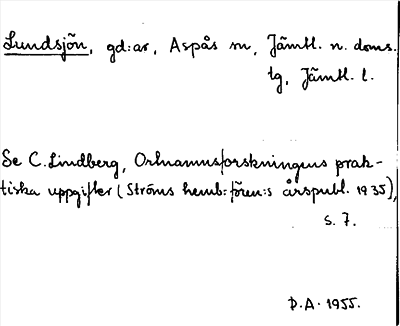 Lundsjön, gd:ar, Aspås sn, Jämtl. n. doms.
lg, Jämtl. l.
Se C. Lindberg, Ortnamnsforskningens prak-
tiska uppgifter (Ströms hemb:fören:s årspubl. 1935),
s. 7.
D.A. 1955.